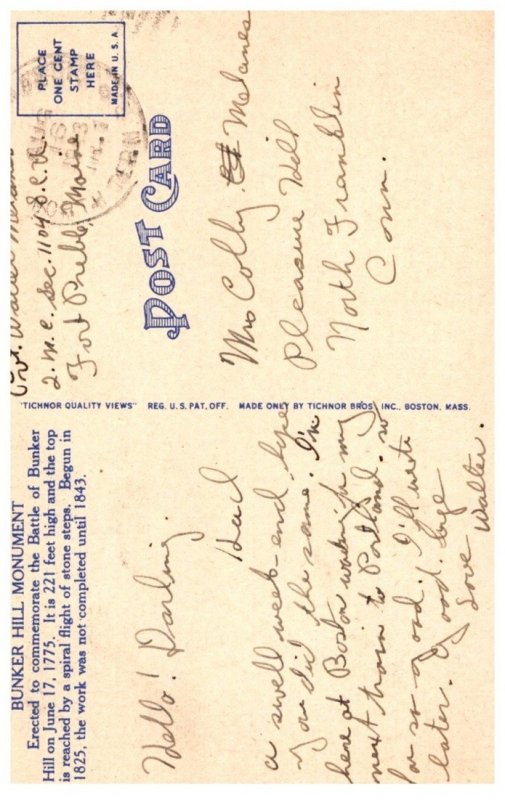 BUNKER HILL MONUMENT
Erected to commemorate the Battle of Bunker
Hill on June 17, 1775. It is 221 feet high and the top
is reached by a spiral flight of stone steps. Begun in
1825, the work was not completed until 1843.
Hello! Darling.
Had
a swell week-end hope
you did the same. I'm
here at Boston waiting for my
next train to Portland. so
for so good. I'll write
later. Good bye
Love Walter.
"TICHNOR QUALITY VIEWS" REG. U. S. PAT. OFF. MADE ONLY BY TICHNOR BROS., INC., BOSTON, MASS.
Pvt. Walter
2. M. C. Sec. 1104 S. C. U.
Fort Preble, Maine
POST CARD
PLACE
ONE CENT
STAMP
HERE
MADE IN U. S. A.
Mrs Colby Melanes
Pleasure Hill
North Franklin
Conn.